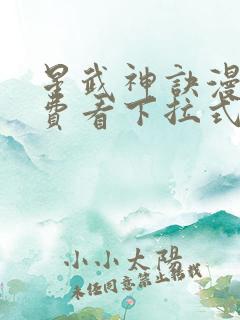 星武神訣漫
費看下拉式
小小太陽
未經同意禁止轉載